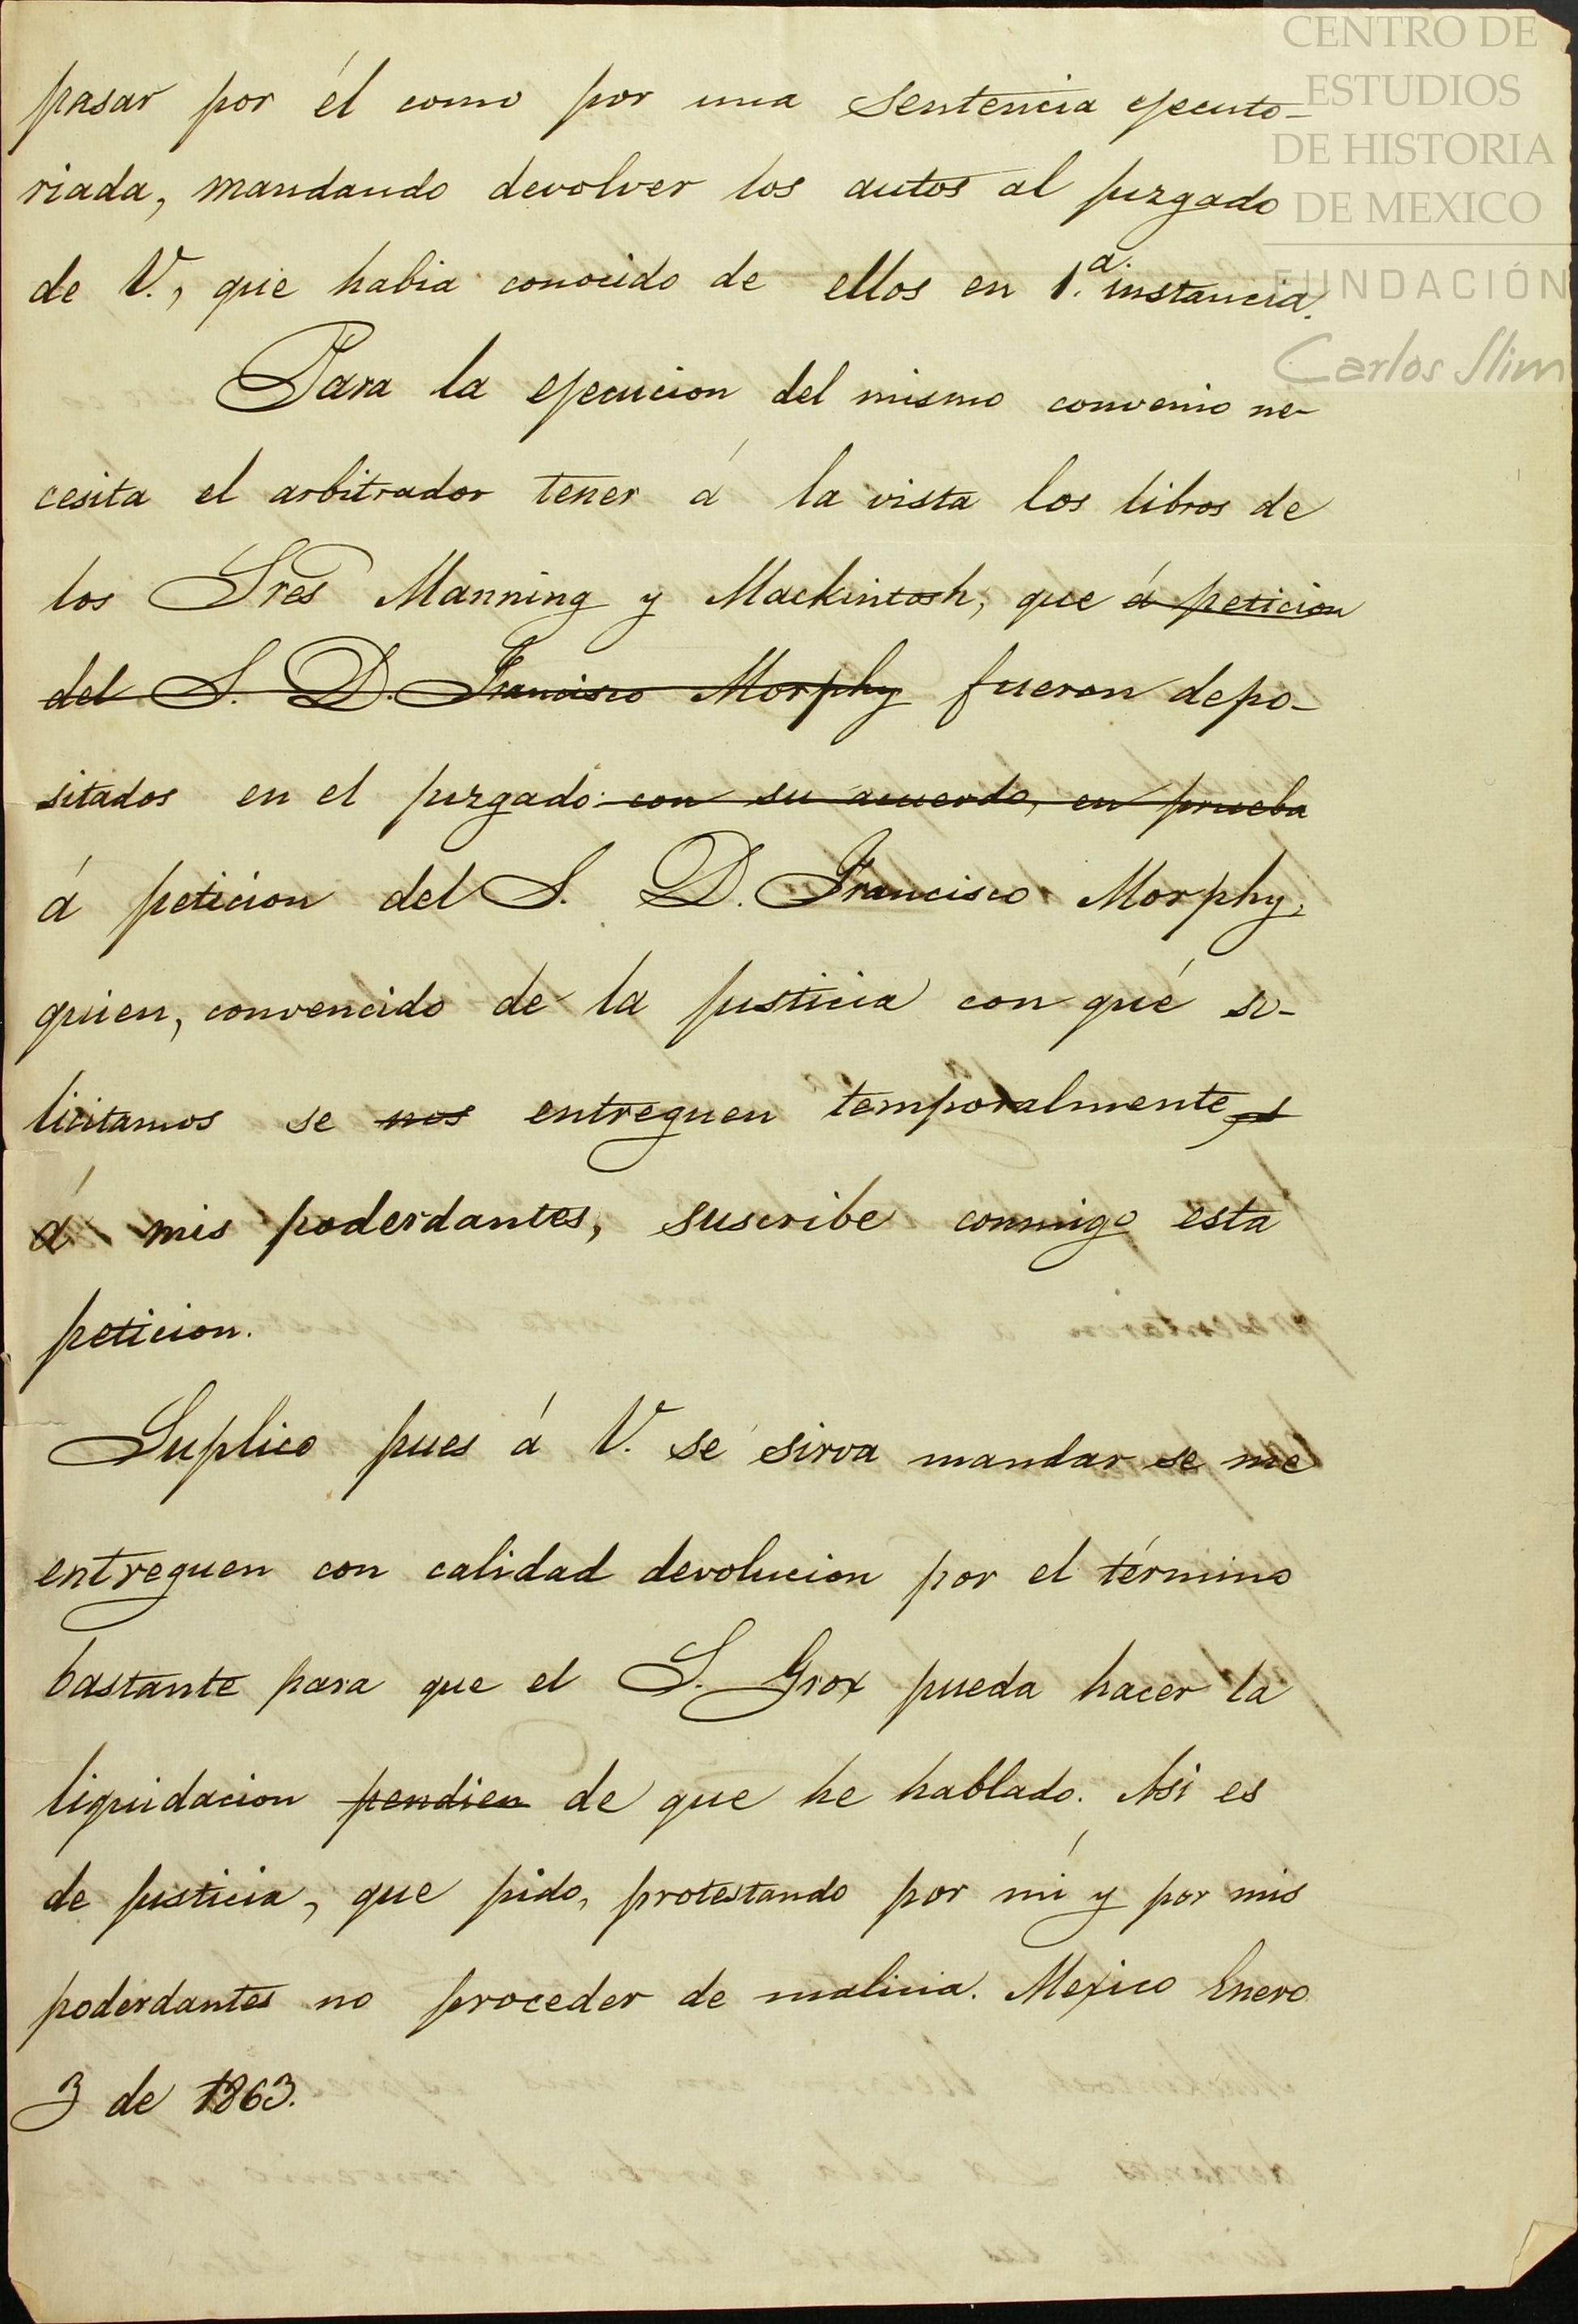 CENTRO DE
ESTUDIOS
DE HISTORIA
DE MEXICO
FUNDACIÓN
Carlos Slim
pasar por él como por una sentencia ejecuto-
riada, mandando devolver los autos al juzgado
de V., que habia conocido de ellos en 1.ª instancia.
Para la ejecucion del mismo convenio ne-
cesita el arbitrador tener á la vista los libros de
los Sres Manning y Mackintosh, que á peticion
del S. D. Francisco Morphy fueron depo-
sitados en el juzgado con su acuerdo, en prueba
á peticion del S. D. Francisco Morphy,
quien, convencido de la justicia con qué so-
licitamos se nos entreguen temporalmente
á mis poderdantes, suscribe conmigo esta
peticion.
Suplico pues á V. se sirva mandar se me
entreguen con calidad devolucion por el término
bastante para que el S. Grox pueda hacer la
liquidacion pendien de que he hablado. Asi es
de justicia, que pido, protestando por mí y por mis
poderdantes no proceder de malicia. Mejico Enero
3 de 1863.